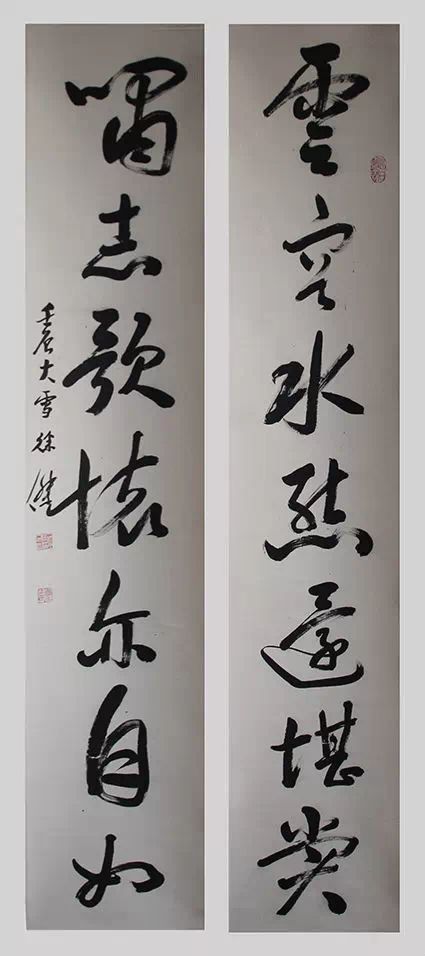 雲容水態還堪賞
嘯志歌懷亦自如
壬辰大雪徐